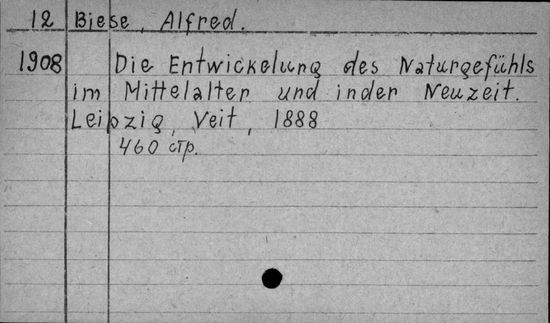 12 Biese, Alfred.
1908 Die Entwickelung des Naturgefühls
im Mittelalter und inder Neuzeit.
Leipzig, Veit, 1888
460 стр.